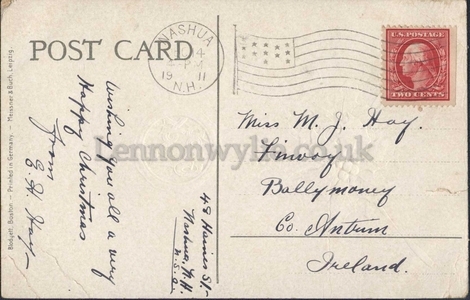 POST CARD
NASHUA
4
P
19 11
N.H.
U.S. POSTAGE
TWO CENTS
Wishing you all a very
Happy Christmas
from
E. H. Hay
48 Haines St
Nashua, N.H.
U.S.A.
Miss M. J. Hay.
Finvoy
Ballymoney
Co. Antrim
Ireland.
Blodgett, Boston — Printed in Germany. — Meissner & Buch, Leipzig.
Lennonwylie.co.uk